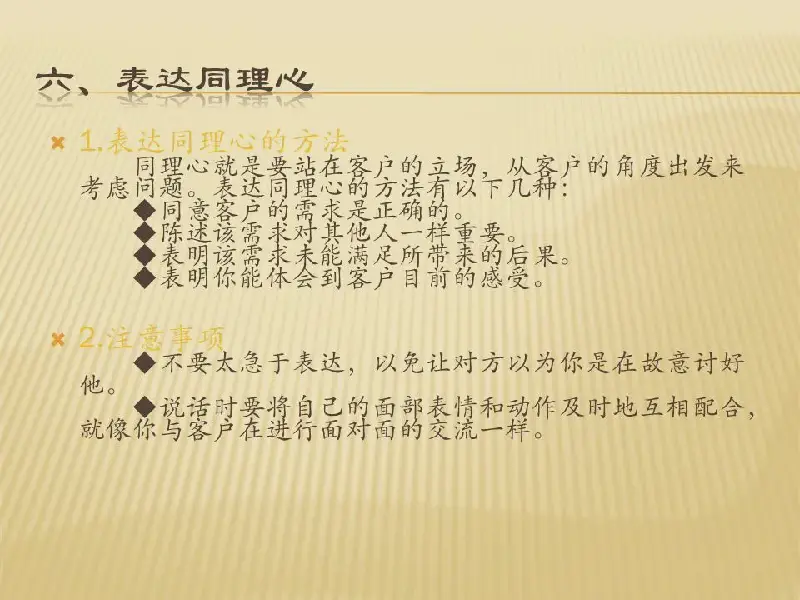 六、表达同理心
1.表达同理心的方法
同理心就是要站在客户的立场，从客户的角度出发来
考虑问题。表达同理心的方法有以下几种：
◆同意客户的需求是正确的。
◆陈述该需求对其他人一样重要。
◆表明该需求未能满足所带来的后果。
◆表明你能体会到客户目前的感受。
2.注意事项
◆不要太急于表达，以免让对方以为你是在故意讨好
他。
◆说话时要将自己的面部表情和动作及时地互相配合，
就像你与客户在进行面对面的交流一样。